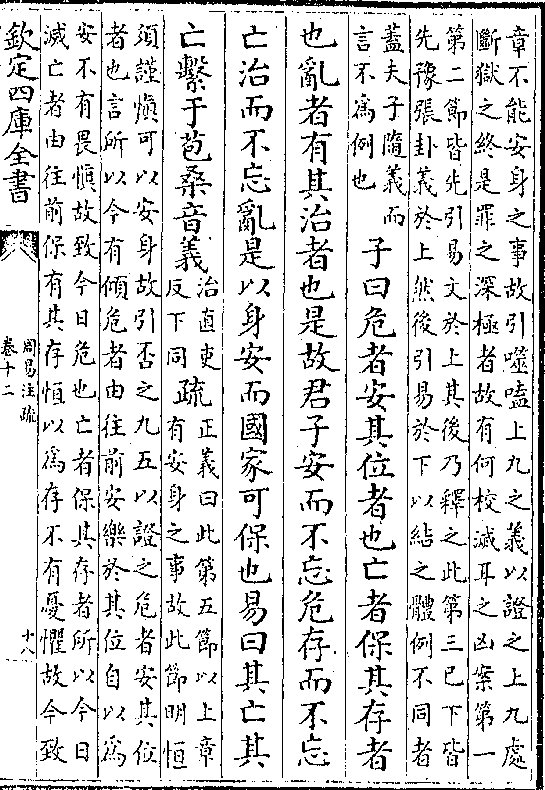 章不能安身之事故引噬嗑上九之義以證之上九處
斷獄之終是罪之深極者故有何校滅耳之凶案第一
第二節皆先引易文於上其後乃釋之此第三已下皆
先豫張卦義於上然後引易於下以結之體例不同者
蓋夫子隨義而
言不為例也
子曰危者安其位者也亡者保其存者
也亂者有其治者也是故君子安而不忘危存而不忘
亡治而不忘亂是以身安而國家可保也易曰其亡其
亡繫于苞桑音義
治直吏
反下同
疏
正義曰此第五節以上章
有安身之事故此節明恒
須謹慎可以安身故引否之九五以證之危者安其位
者也言所以今有傾危者由往前安樂於其位自以為
安不有畏慎故致今日危也亡者保其存者所以今日
滅亡者由往前保有其存恒以為存不有憂懼故今致
欽定四庫全書
周易注疏
卷十二
十八